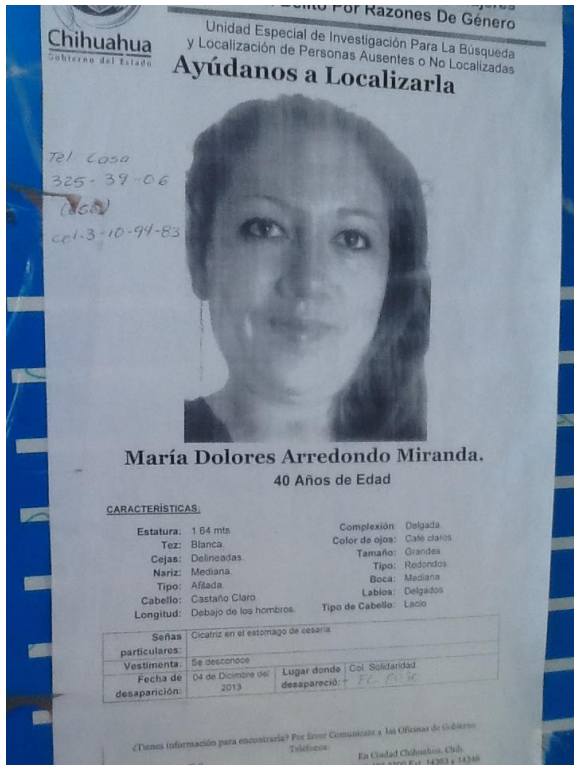 Por Razones De Género
Unidad Especial de Investigación Para La Búsqueda
y Localización de Personas Ausentes o No Localizadas
Chihuahua
Gobierno del Estado
Ayúdanos a Localizarla
Tel Casa
325-39-06
cel-3-10-94-83
María Dolores Arredondo Miranda.
40 Años de Edad
CARACTERÍSTICAS.
Estatura: 1.64 mts
Tez: Blanca.
Cejas: Delineadas.
Nariz: Mediana.
Tipo: Afilada.
Cabello: Castaño Claro.
Longitud: Debajo de los hombros.
Complexión: Delgada.
Color de ojos: Café claros
Tamaño: Grandes
Tipo: Redondos
Boca: Mediana
Labios: Delgados
Tipo de Cabello: Lacio
Señas particulares: Cicatriz en el estomago de cesaria
Vestimenta: Se desconoce
Fecha de desaparición: 04 de Diciembre del 2013
Lugar donde desapareció: Col. Solidaridad
¿Tienes información para encontrarla? Por favor Comunícate a las Oficinas de Gobierno
Teléfonos:
En Ciudad Chihuahua, Chih.